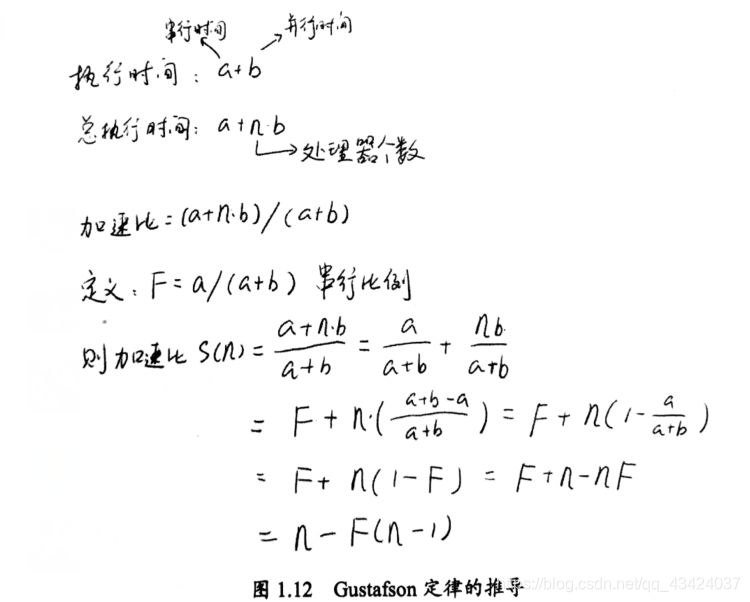 串行时间 并行时间
执行时间：a+b
总执行时间：a+n·b
处理器个数
加速比=(a+n·b)/(a+b)
定义：F=a/(a+b) 串行比例
则加速比 S(n)= (a+n·b)/(a+b) = a/(a+b) + nb/(a+b)
= F+n·((a+b-a)/(a+b)) = F+n(1-a/(a+b))
= F+n(1-F) = F+n-nF
= n-F(n-1)
图 1.12 Gustafson 定律的推导
https://blog.csdn.net/qq_43424037